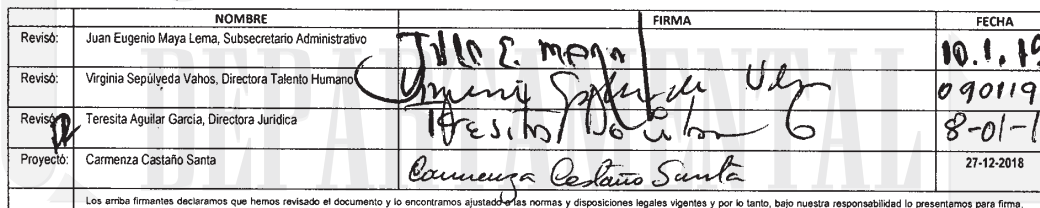 NOMBRE FIRMA FECHA
Revisó: Juan Eugenio Maya Lema, Subsecretario Administrativo Juan E. Maya 10.1.19
Revisó: Virginia Sepúlveda Vahos, Directora Talento Humano Virginia Sepúlveda 090119
Revisó: Teresita Aguilar García, Directora Jurídica Teresita Aguilar 8-01-1
Proyectó: Carmenza Castaño Santa Carmenza Castaño Santa 27-12-2018
Los arriba firmantes declaramos que hemos revisado el documento y lo encontramos ajustado a las normas y disposiciones legales vigentes y por lo tanto, bajo nuestra responsabilidad lo presentamos para firma.
DEPARTAMENTAL